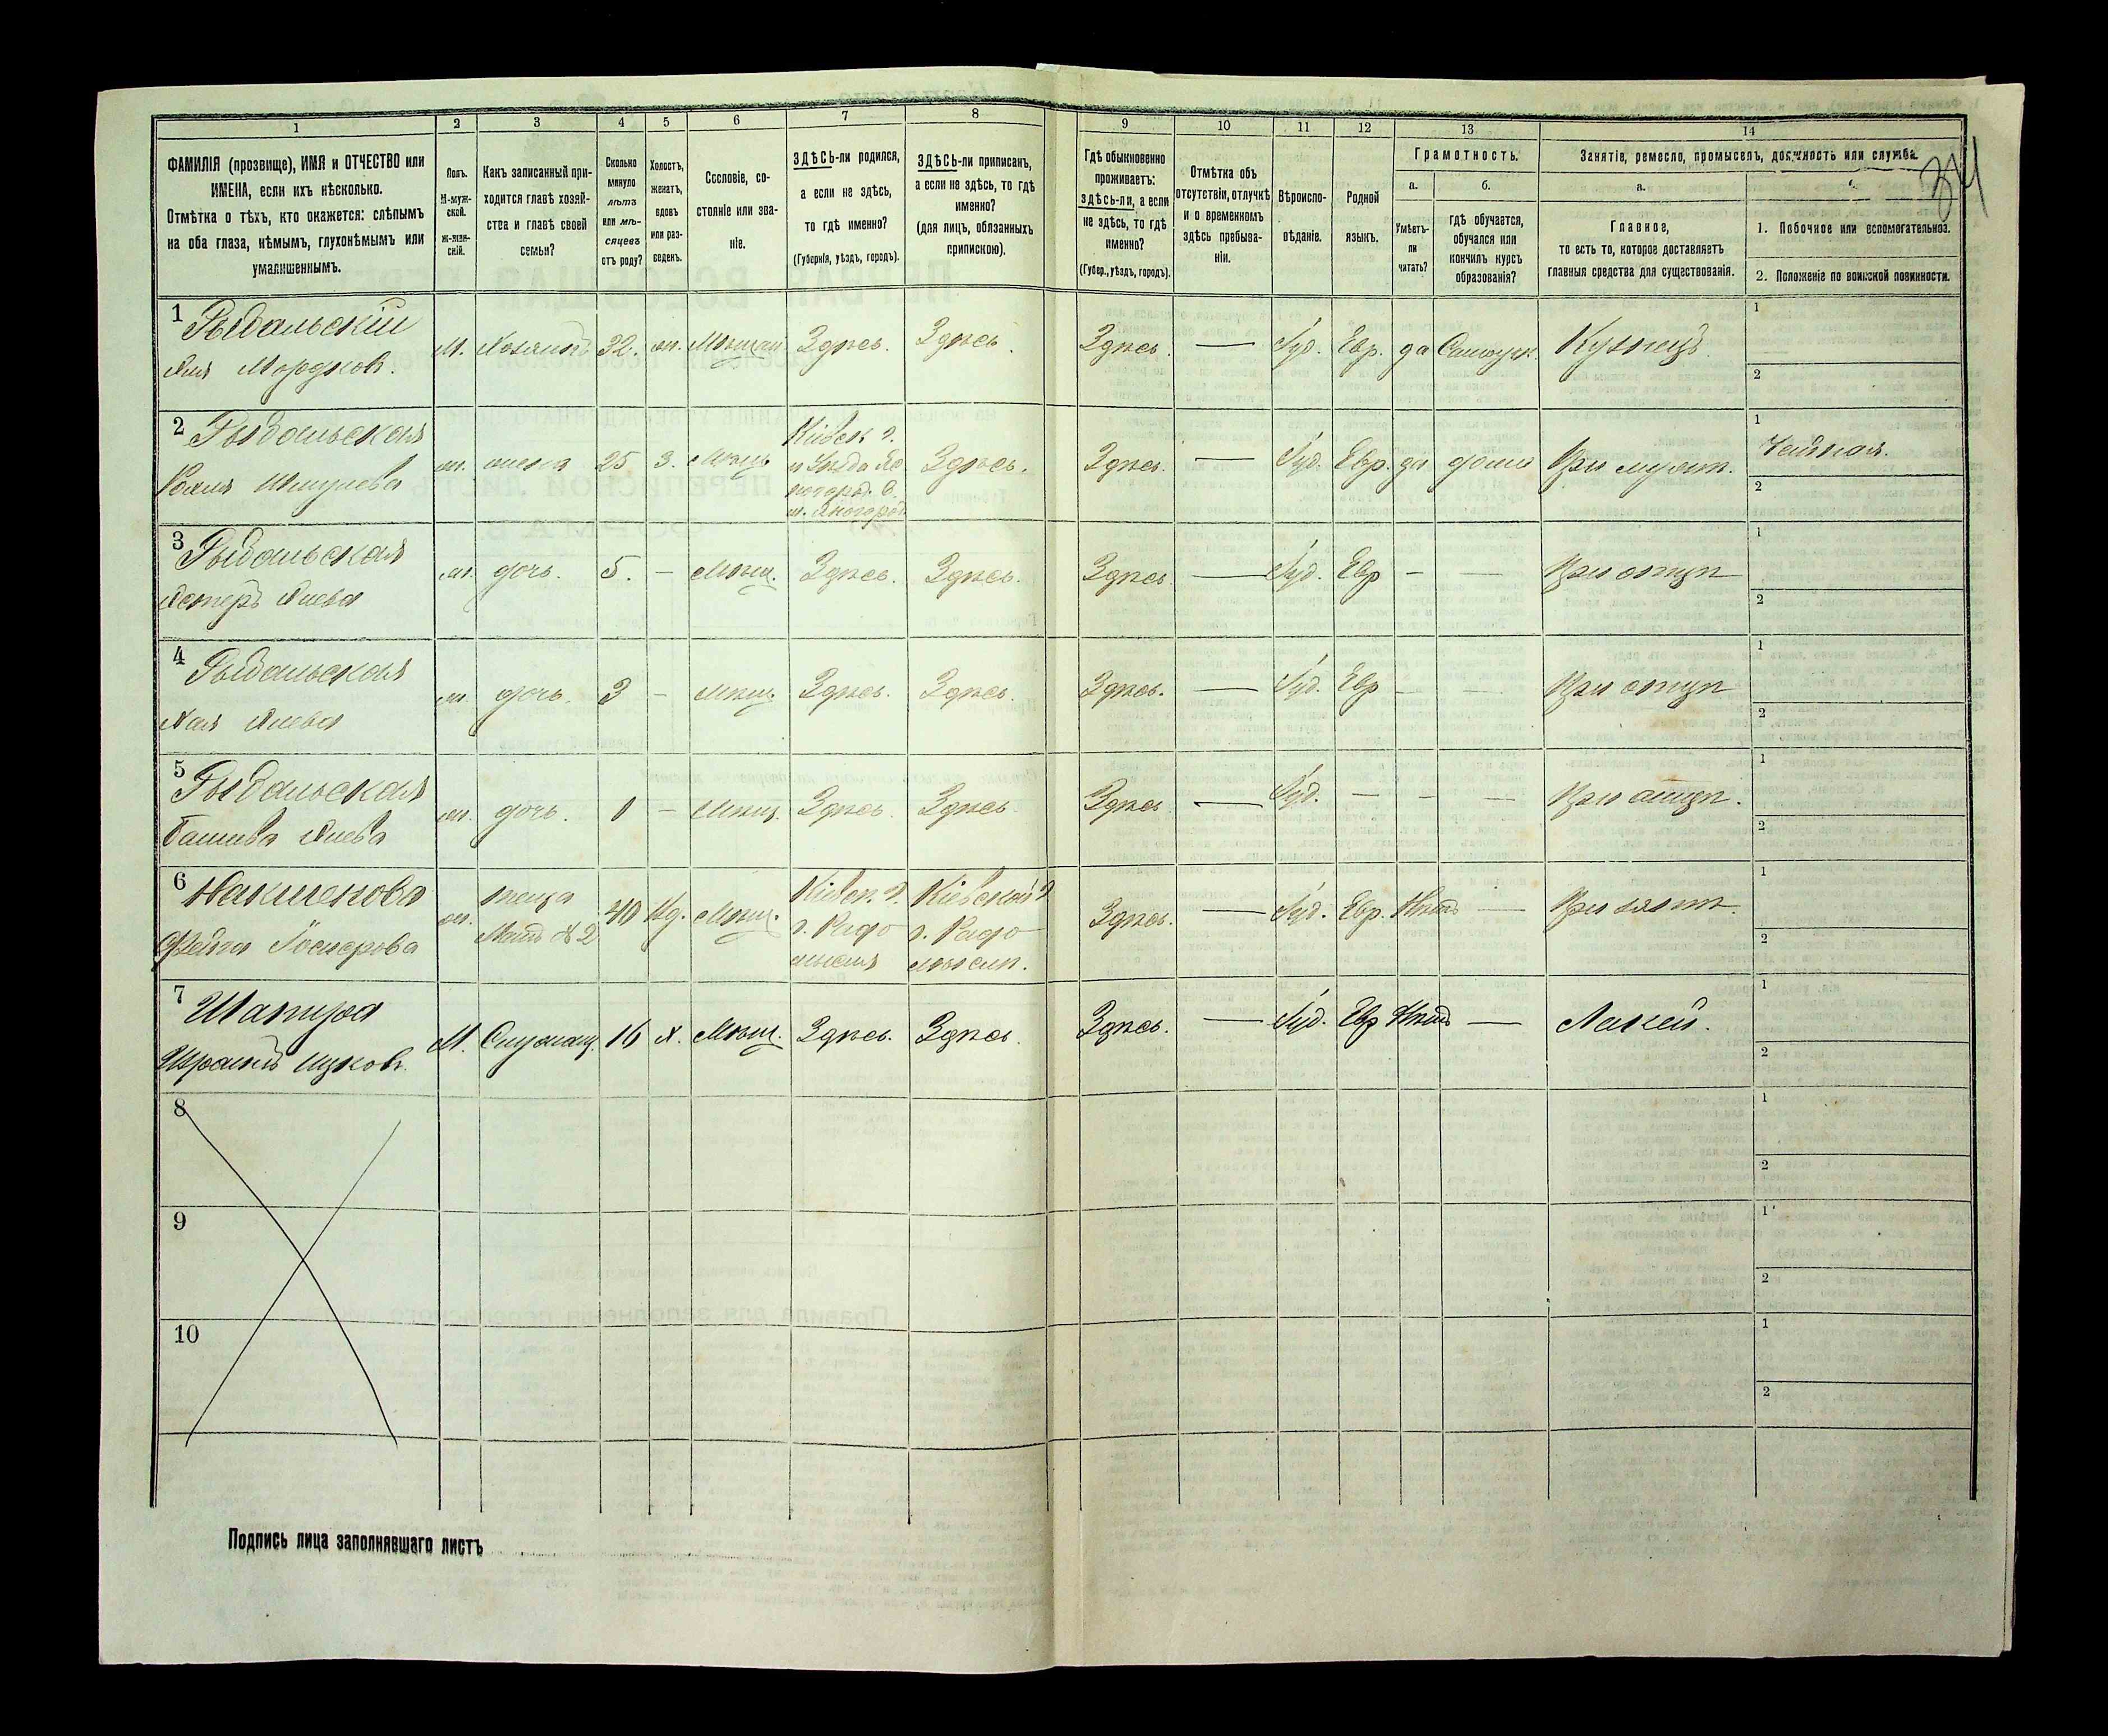 1 2 3 4 5 6 7 8 9 10 11 12 13 14
ФАМИЛІЯ (прозвище), ИМЯ и ОТЧЕСТВО или
ИМЕНА, если ихъ нѣсколько.
Отмѣтка о тѣхъ, кто окажется: слѣпымъ
на оба глаза, нѣмымъ, глухонѣмымъ или
умалишеннымъ.
Полъ.
М-муж-
ской.
Ж-жен-
скій.
Какъ записанный при-
ходится главѣ хозяй-
ства и главѣ своей
семьи?
Сколько
минуло
лѣтъ
или мѣ-
сяцевъ
отъ роду?
Холостъ,
женатъ,
вдовъ
или раз-
веденъ.
Сословіе, со-
стояніе или зва-
ніе.
ЗДѢСЬ-ли родился,
а если не здѣсь,
то гдѣ именно?
(Губернія, уѣздъ, городъ).
ЗДѢСЬ-ли приписанъ,
а если не здѣсь, то гдѣ
именно?
(для лицъ, обязанныхъ
припискою).
Гдѣ обыкновенно
проживаетъ:
здѣсь-ли, а если
не здѣсь, то гдѣ
именно?
(Губер., уѣздъ, городъ).
Отмѣтка объ
отсутствіи, отлучкѣ
и о временномъ
здѣсь пребыва-
ніи.
Вѣроиспо-
вѣданіе.
Родной
языкъ.
Грамотность.
а.
Умѣетъ-
ли
читать?
б.
гдѣ обучается,
обучался или
кончилъ курсъ
образованія?
Занятіе, ремесло, промыселъ, должность или служба.
а.
Главное,
то есть то, которое доставляетъ
главныя средства для существованія.
1. Побочное или вспомогательное.
2. Положеніе по воинской повинности.
34
1 Рыбальскій
Мордков.
М. Хозяинъ 32. Мѣщан Здѣсь. Здѣсь. Здѣсь. — Іуд. Евр. да Самоуч. Кузнецъ
1
2
2 Рыбальская
ж. жена 25 З. Мѣщ. Кіевск г.
Здѣсь. Здѣсь. — Іуд. Евр. да дома При мужѣ.
1 Чайная.
2
3 Рыбальская
Эстеръ
ж. дочь. 5. — Мѣщ. Здѣсь. Здѣсь. Здѣсь — Іуд. Евр — — При отцѣ
1
2
4 Рыбальская
Хая
ж. дочь. 3 — Мѣщ. Здѣсь. Здѣсь. Здѣсь. — Іуд. Евр — — При отцѣ
1
2
5 Рыбальская
ж. дочь. 1 — Мѣщ. Здѣсь. Здѣсь. Здѣсь — Іуд. — — — При отцѣ.
1
2
6
Фейга
ж. теща
Мать №2
40 Вд. Мѣщ. Кіевск. г.
г. Радо
мысль
Кіевской г
г. Радо
мысль.
Здѣсь. — Іуд. Евр. Нѣтъ — При зятѣ.
1
2
7 Шапиро
Ицков.
М. 16 х. Мѣщ. Здѣсь. Здѣсь. Здѣсь. — Іуд. Евр Нѣтъ — Лакей.
1
2
8
1
2
9
1
2
10
1
2
Подпись лица заполнявшаго листъ